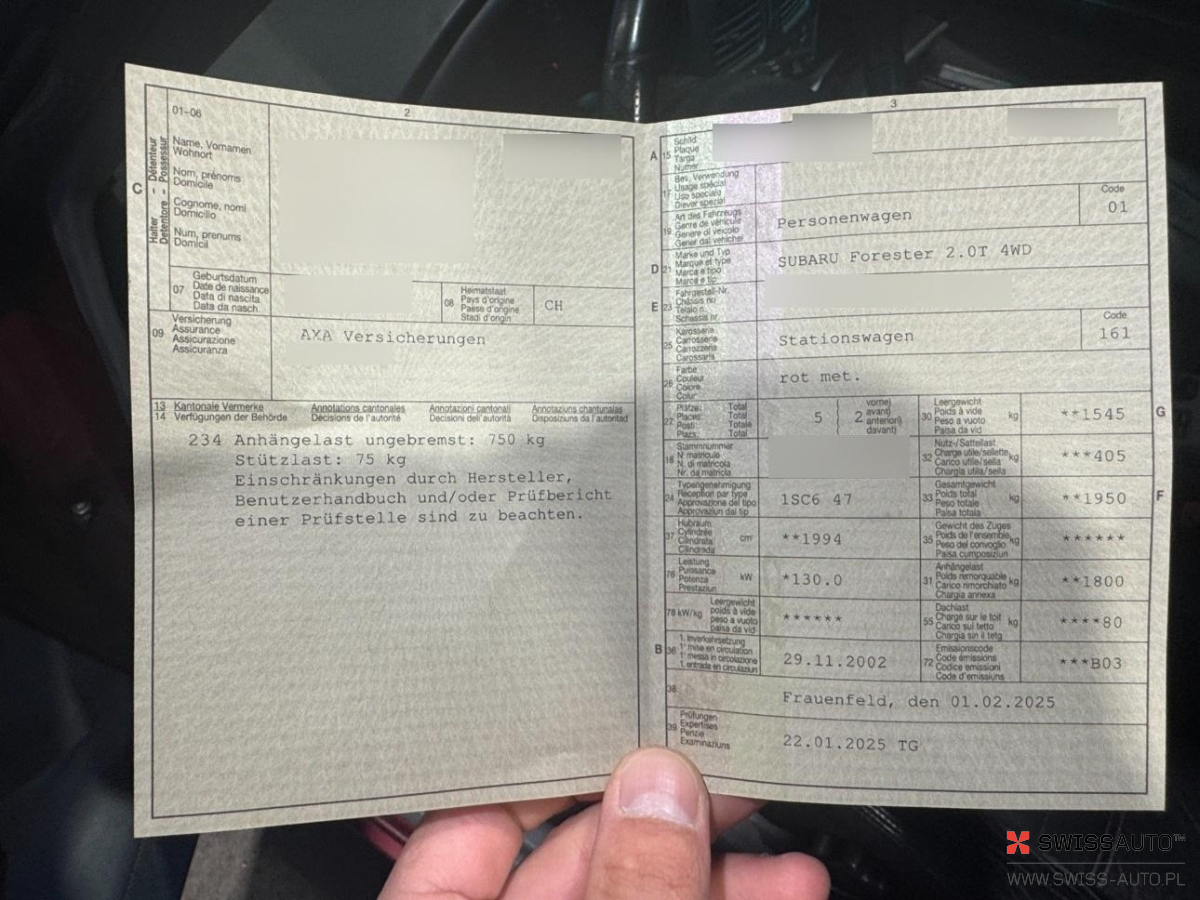 01-06
2
C
Halter - Détenteur
Detentore - Possessur
Name, Vornamen
Wohnort
Nom, prénoms
Domicile
Cognome, nomi
Domicilio
Num, prenums
Domicil
07
Geburtsdatum
Date de naissance
Data di nascita
Data da nasch.
08
Heimatstaat
Pays d'origine
Paese d'origine
Stadi d'origin
CH
09
Versicherung
Assurance
Assicurazione
Assicuranza
AXA Versicherungen
13 Kantonale Vermerke Annotations cantonales Annotazioni cantonali Annotaziuns chantunalas
14 Verfügungen der Behörde Décisions de l'autorité Decisioni dell'autorità Disposiziuns da l'autoritad
234 Anhängelast ungebremst: 750 kg
Stützlast: 75 kg
Einschränkungen durch Hersteller,
Benutzerhandbuch und/oder Prüfbericht
einer Prüfstelle sind zu beachten.
3
A 15
Schild
Plaque
Targa
Numer
17
Bes. Verwendung
Usage spécial
Uso speciale
Diever spezial
19
Art des Fahrzeugs
Genre de véhicule
Genere di veicolo
Gener dal vehichel
Personenwagen
Code
01
D 21
Marke und Typ
Marque et type
Marca e tipo
Marca e tip
SUBARU Forester 2.0T 4WD
E 23
Fahrgestell-Nr.
Châssis no
Telaio n.
Schassis nr.
25
Karosserie
Carrosserie
Carrozzeria
Carossaria
Stationswagen
Code
161
26
Farbe
Couleur
Colore
Colur
rot met.
27
Plätze: Total
Places: Total
Posti: Totale
Plazs: Total
5
2
vorne)
avant)
anteriori)
davant)
30
Leergewicht
Poids à vide
Peso a vuoto
Paisa da vid
kg
**1545
G
18
Stammnummer
N° matricule
N. di matricola
Nr. da matricla
32
Nutz-/Sattellast
Charge utile/sellette
Carico utile/sella
Chargia utila/sella
kg
***405
24
Typengenehmigung
Réception par type
Approvazione del tipo
Approvaziun dal tip
1SC6 47
33
Gesamtgewicht
Poids total
Peso totale
Paisa totala
kg
**1950
F
37
Hubraum
Cylindrée
Cilindrata
Cilindrada
cm³
**1994
35
Gewicht des Zuges
Poids de l'ensemble
Peso del convoglio
Paisa cumposiziun
kg
******
76
Leistung
Puissance
Potenza
Prestaziun
kW
*130.0
31
Anhängelast
Poids remorquable
Carico rimorchiato
Chargia annexa
kg
**1800
78 kW/kg
Leergewicht
poids à vide
peso a vuoto
paisa da vid
******
55
Dachlast
Charge sur le toit
Carico sul tetto
Chargia sin il tetg
kg
****80
B 36
1. Inverkehrsetzung
1re mise en circulation
1a messa in circolazione
1. entrada en circulaziun
29.11.2002
72
Emissionscode
Code émissions
Codice emissioni
Code d'emissiuns
***B03
38
Frauenfeld, den 01.02.2025
39
Prüfungen
Expertises
Perizie
Examinaziuns
22.01.2025 TG
SWISSAUTO™
WWW.SWISS-AUTO.PL